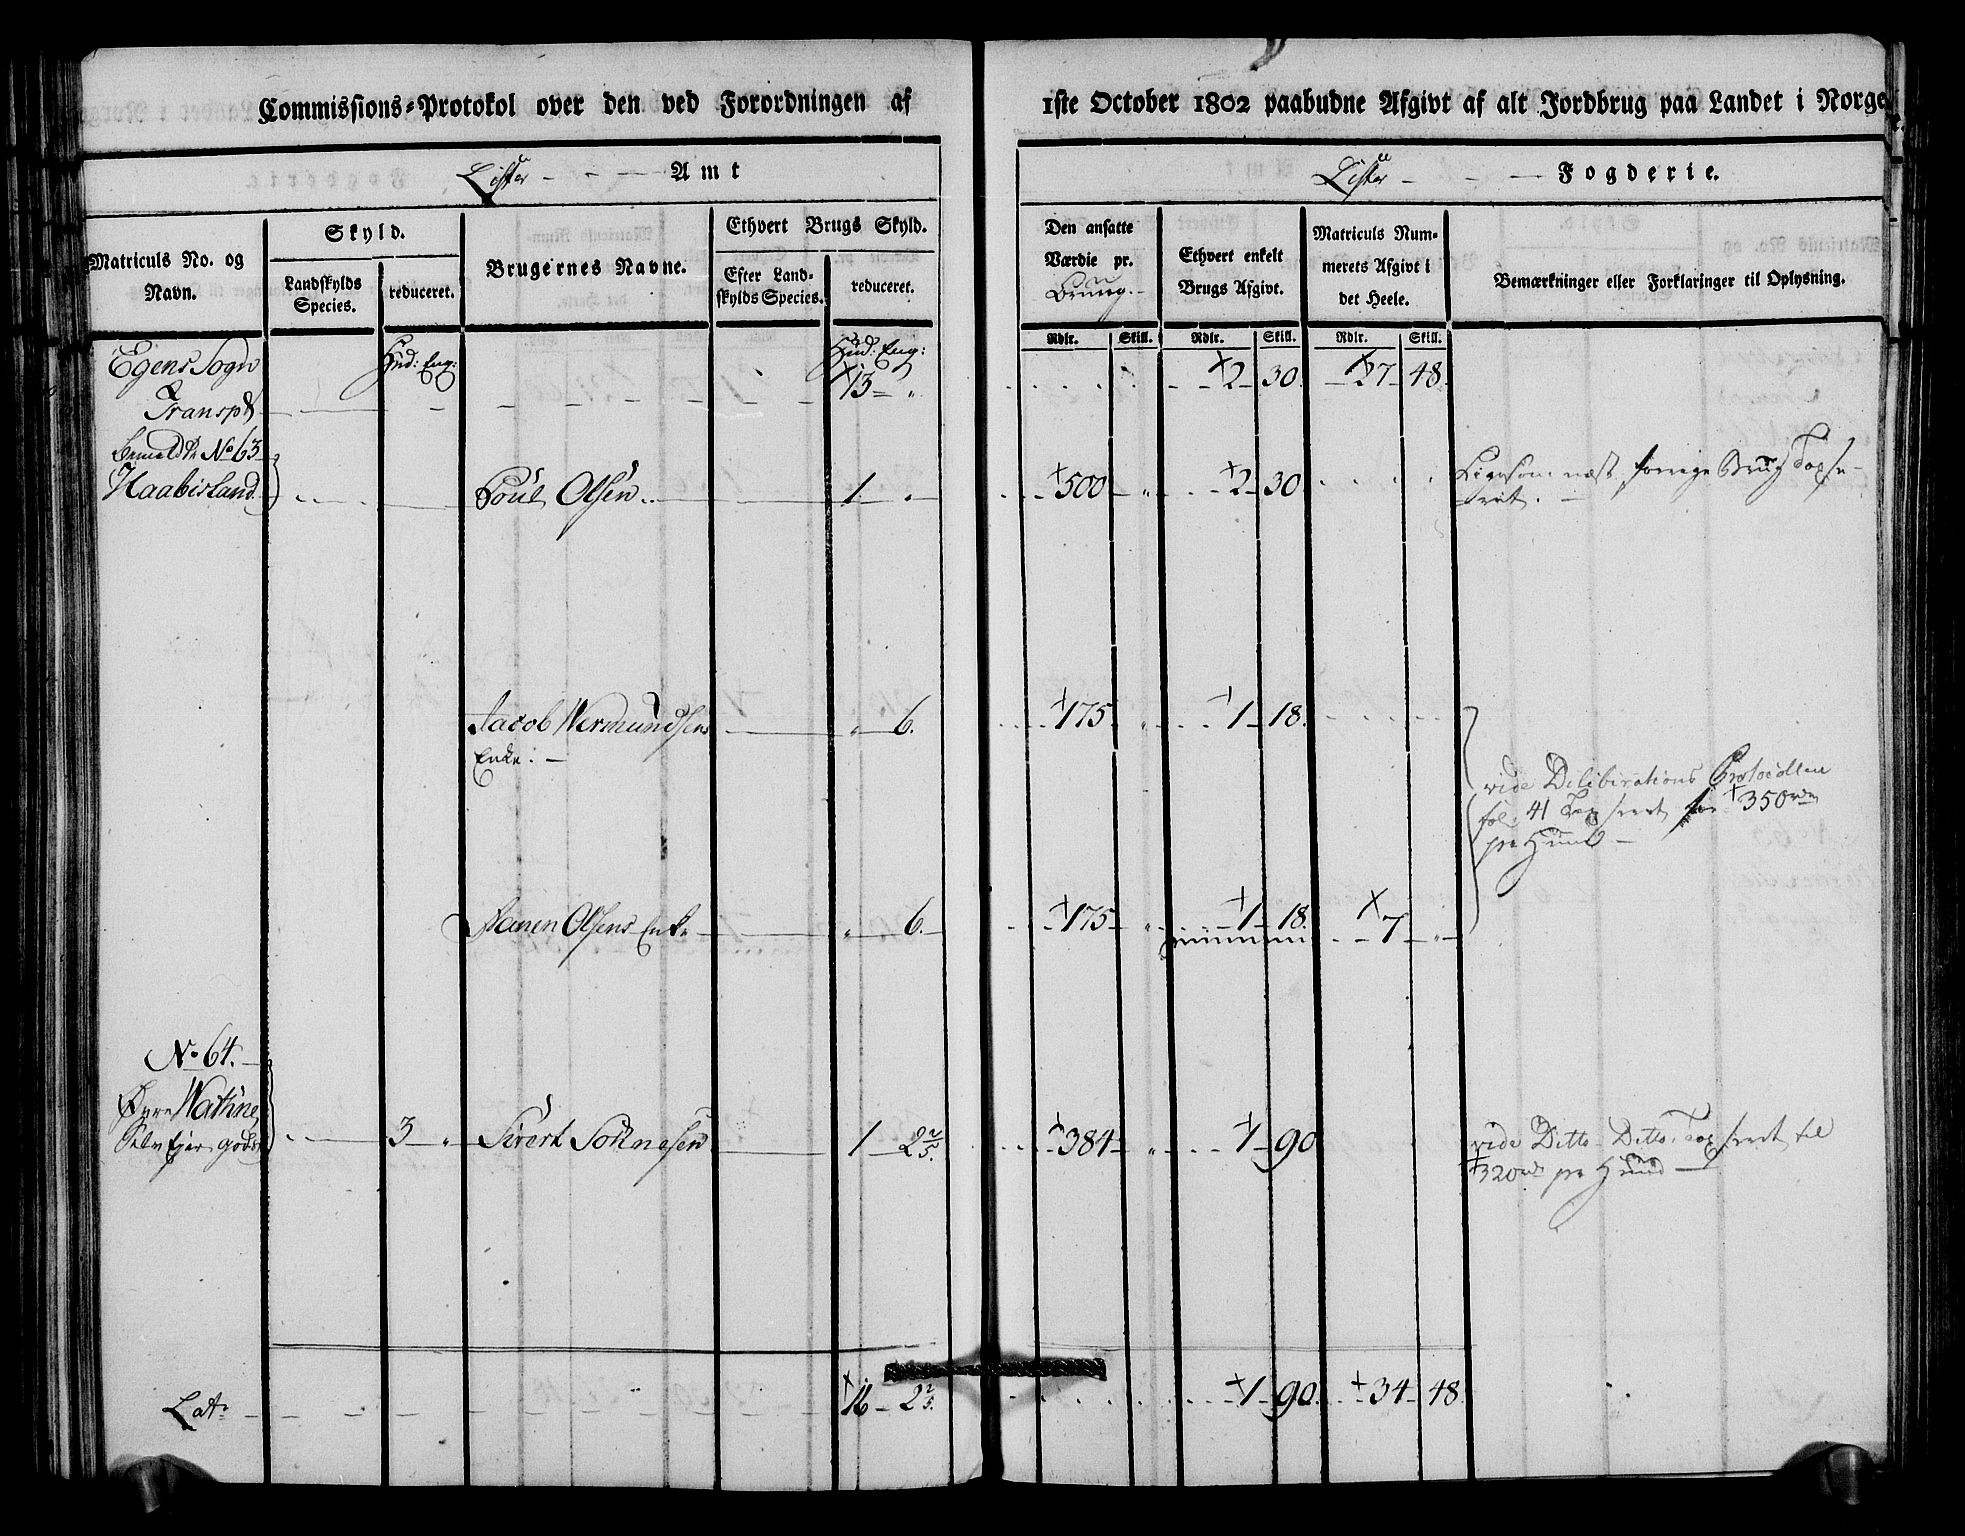 Commissions-Protokol over den ved Forordningen af 1ste October 1802 paabudne Afgivt af alt Jordbrug paa Landet i Norge.
Lister - - - Amt
Lister - - - Fogderie.
Matriculs No. og Navn.
Skyld.
Landskylds Species.
reduceret.
Brugernes Navne.
Ethvert Brugs Skyld.
Efter Landskylds Species.
reduceret.
Den ansatte Værdie pr. Bruug.
Ethvert enkelt Brugs Afgivt.
Matriculs Nummerets Afgivt i det Heele.
Bemærkninger eller Forklaringer til Oplysning.
Rdlr. Skill. Rdlr. Skill. Rdlr. Skill.
Egens Sogn Hud: Eng: Hud: Eng:
Transpt - - - - 13 - „ 2 30. 27 48.
No 63
Haabisland Poul Olsen 1 „ 500 „ 2 30 Ligesom næst forrige Brug Taxeret.
Jacob Wermundsens „ 6. 175 „ 1 18.
Enke. -
vide Deliberations Protocollen
fol. 41 Taxeret for 350 rdr
pr Huud -
Olsens Enke „ 6. 175 „ 1 18. 7 „
No 64.
Øvre Wathne
Selv Ejer gods 3 „ Sivert 1 2 2/5. 384 „ 1 90 vide Ditto Ditto Taxeret til
320 rdr pr Huud -
Lats - - - - 16 2 2/5. 1 90. 34 48.